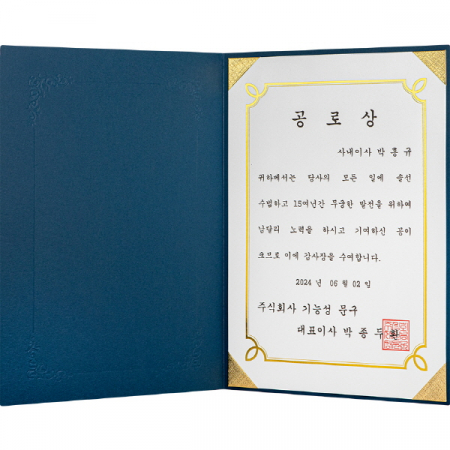 공 로 상
사내이사 박 홍 규
귀하께서는 당사의 모든 일에 솔선
수범하고 15여년간 무궁한 발전을 위하여
남달리 노력을 하시고 기여하신 공이
크므로 이에 감사장을 수여합니다.
2024 년 06 월 02 일
주식회사 기능성 문구
대표이사 박 종 두